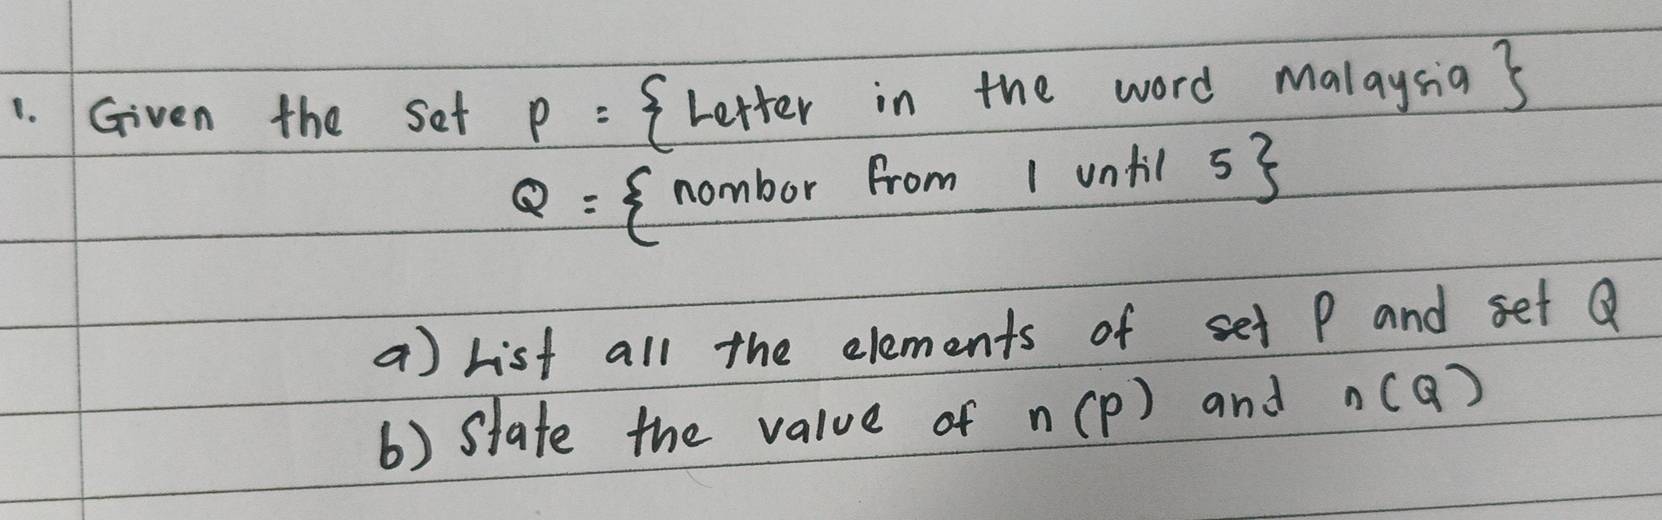 1. Given the set P = { Letter in the word Malaysia }
Q = { nombor from 1 until 5 }
a) List all the elements of set P and set Q
b) State the value of n (P) and n (Q)